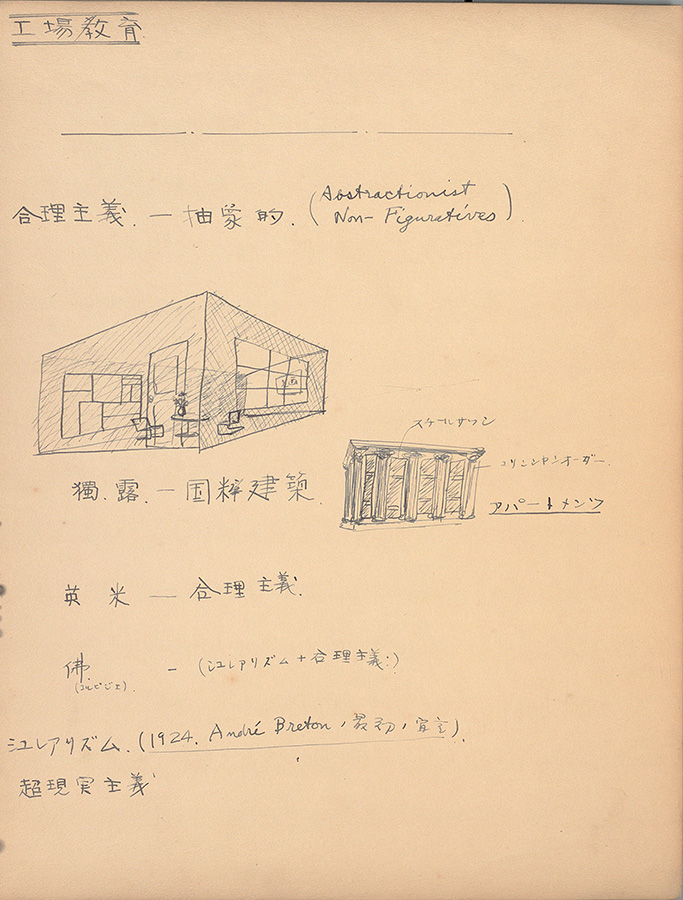 工場教育
合理主義.ー抽象的.(Abstractionist
Non-Figuratives).
スケルサクン
コリンシヤンオーダー.
アパートメンツ
獨.露.ー国粹建築.
英 米 ー 合理主義.
佛 ー (シユレアリズム+合理主義:)
(コルビジエ).
シユレアリズム.(1924. André Breton,最初,宣言).
超現実主義